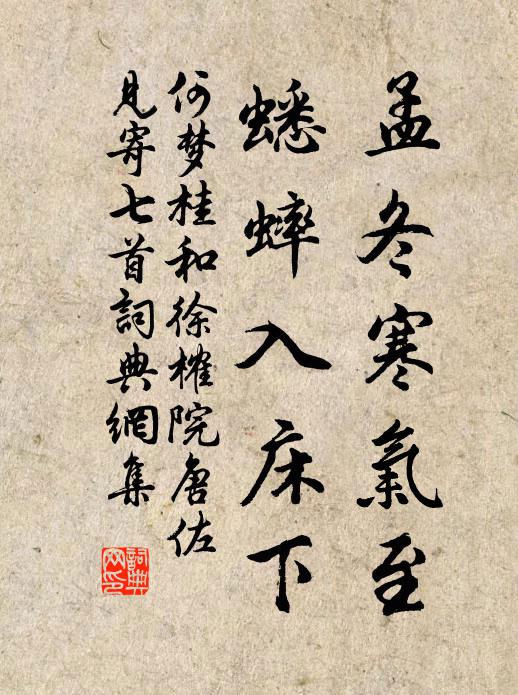 孟冬寒氣至
蟋蟀入床下
何梦桂和徐榷院唐佐
見寄七首詞典網集
詞典
网印